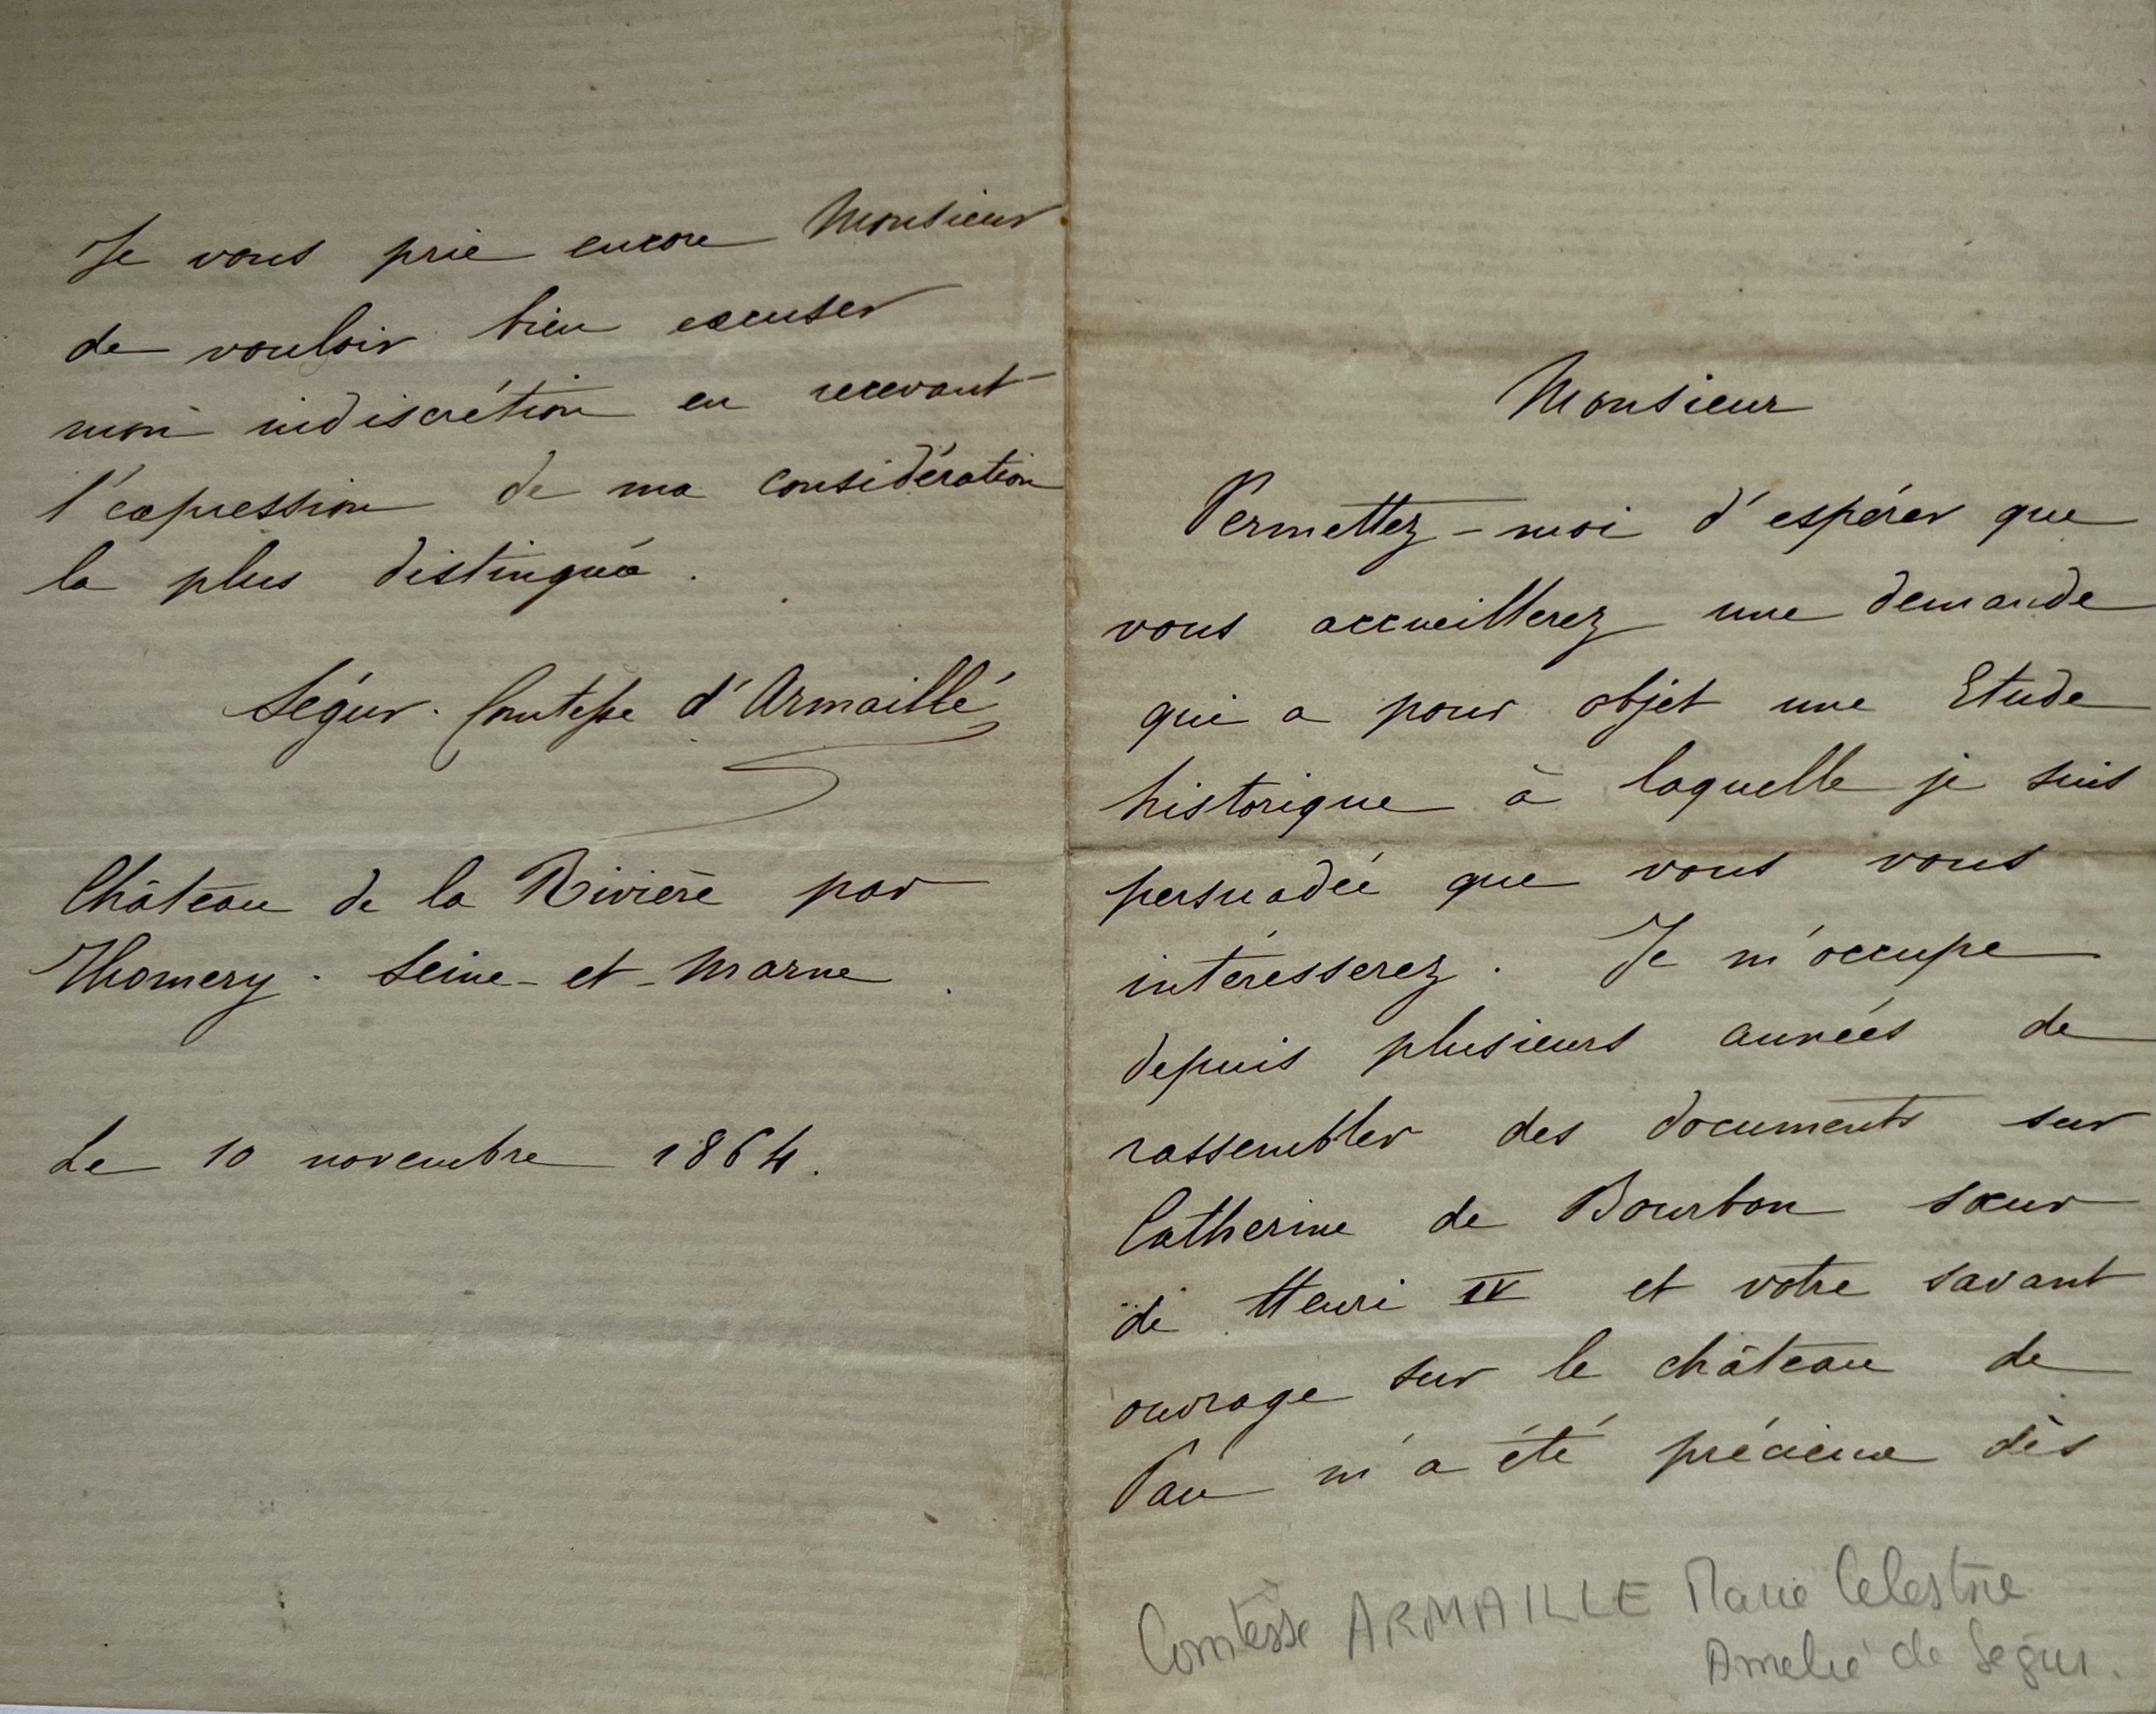 Je vous prie encore Monsieur
de vouloir bien excuser
mon indiscrétion en recevant
l'expression de ma considération
la plus distinguée.
Ségur. Comtesse d'Armaillé
Château de la Rivière par
Thomery. Seine-et-Marne.
Le 10 novembre 1864.
Monsieur
Permettez-moi d'espérer que
vous accueillerez une demande
qui a pour objet une Etude
historique à laquelle je suis
persuadée que vous vous
intéresserez. Je m'occupe
depuis plusieurs années de
rassembler des documents sur
Catherine de Bourbon sœur
de Henri IV et votre savant
ouvrage sur le château de
Pau m'a été précieux dès
Comtesse ARMAILLE Marie Celestine
Amelie de Segur.